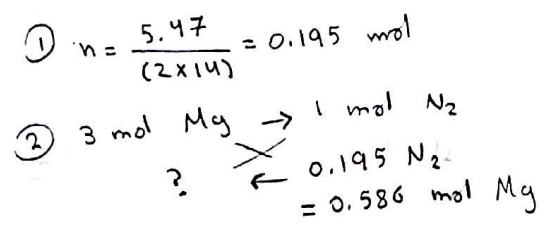 ① n = 5.47 / (2x14) = 0.195 mol
② 3 mol Mg → 1 mol N₂
? ← 0.195 N₂
= 0.586 mol Mg